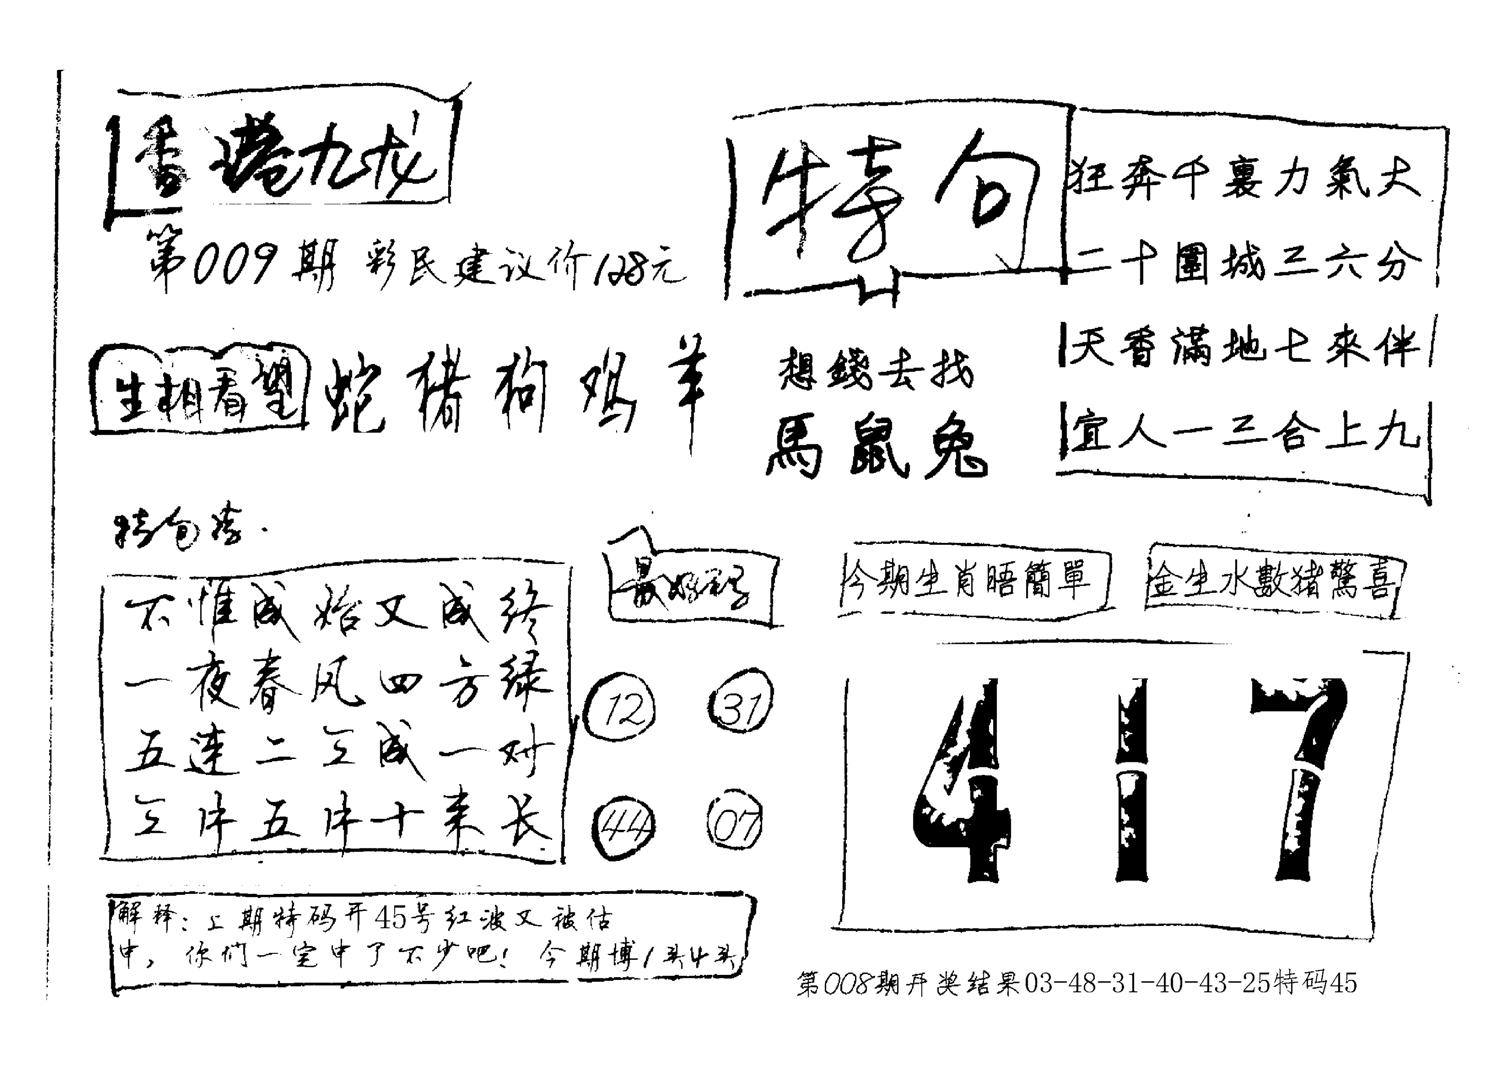 香港九龙
第009期 彩民建议价128元
生相看望 蛇猪狗鸡羊
特句
狂奔千裏力氣大
二十圍城三六分
天香滿地七來伴
宜人一三合上九
想錢去找
馬鼠兔
特句诗
不惟成始又成终
一夜春风四方绿
五连二三成一对
三中五中十来长
最好码
12 31
44 07
今期生肖晤簡單
金生水數猪驚喜
417
解释：上期特码开45号红波又被估
中，你们一定中了不少吧！今期博1头4头
第008期开奖结果03-48-31-40-43-25特码45